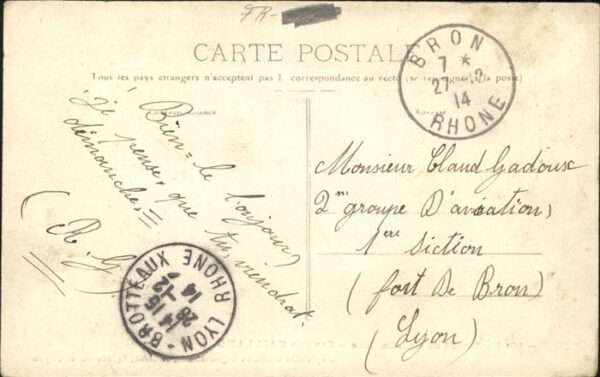 FR-
CARTE POSTALE
Tous les pays étrangers n'acceptent pas la correspondance au recto (se renseigner à la poste)
BRON
7 *
27-12
14
RHONE
Bien = le bonjour
je pense, que tu, viendrat.
démanche, =
(R. G.)
Monsieur Claud Gadoux
2me groupe D'aviation,
1ère Siction
(fort De Bron)
(Lyon)
LYON-BROTTEAUX
14 15
28-12
14
RHONE